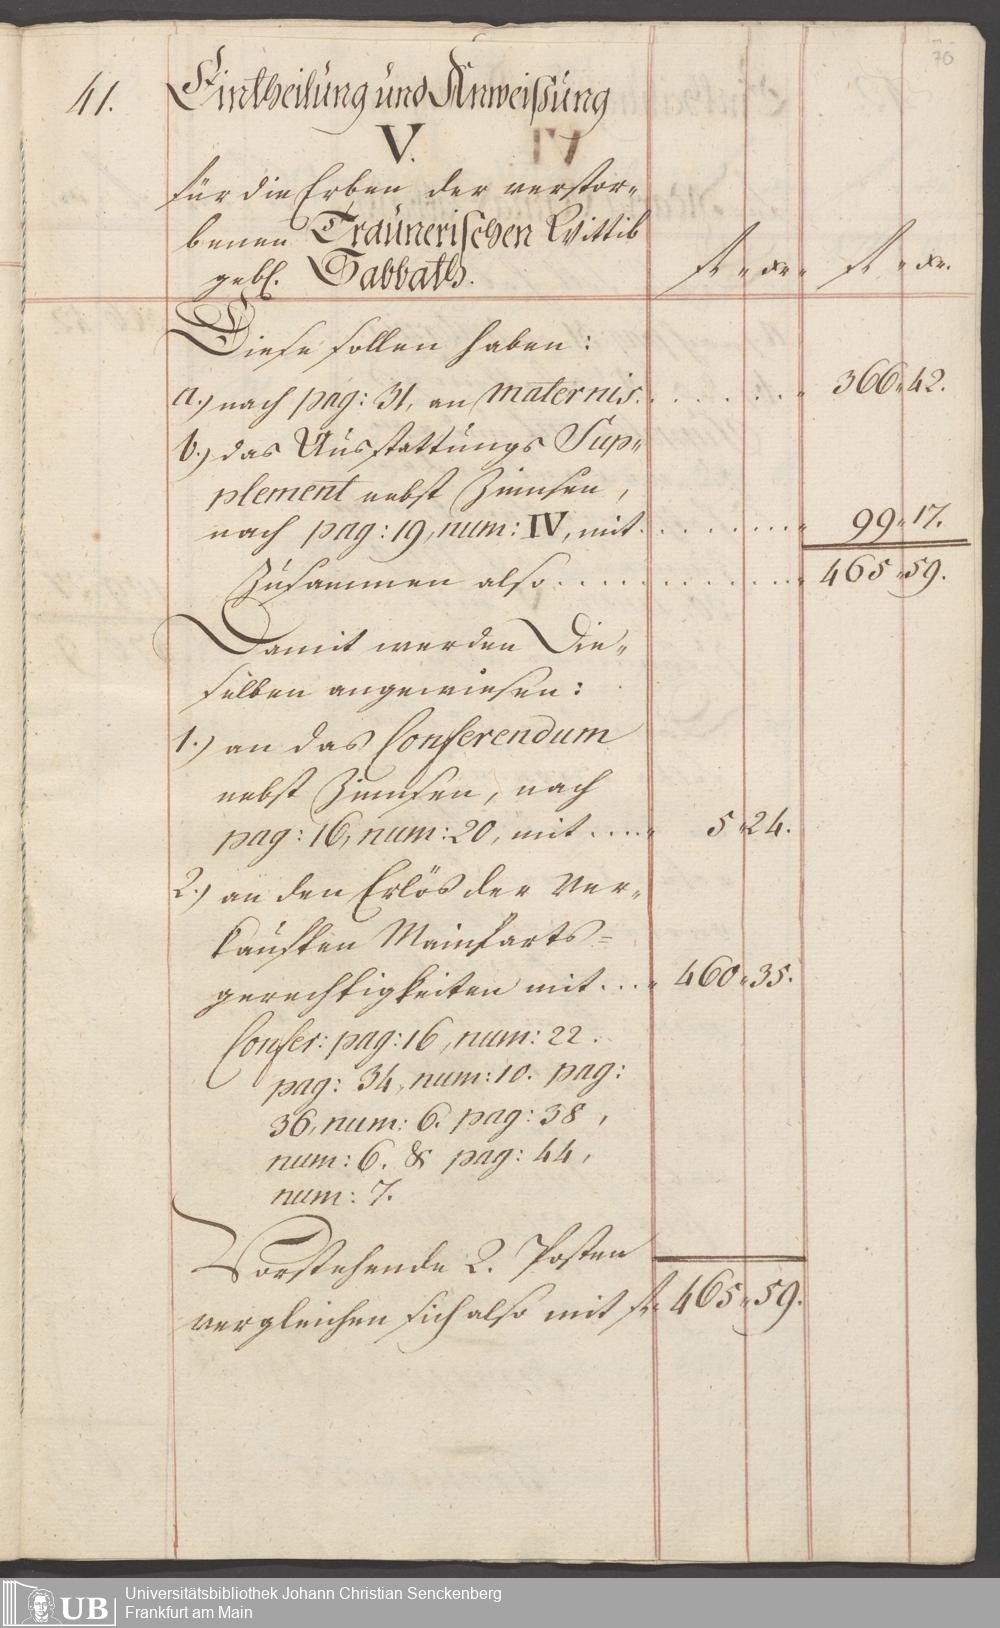 70
41.
Eintheilung und Anweißung
V.
für die Erben der verstor„
benen Traunerischen Wittib
gebl. Sabbath.
fl „ xr „ fl „ xr.
Diese sollen haben:
a.) nach pag: 31, an Maternis. . . . . . . 366 „ 42.
b.) das Ausstattungs Sup„
plement nebst Zinnsen,
nach pag: 19, num: IV, mit . . . . . . . . 99 „ 17.
Zusammen also . . . . . . . . . . . . . 465 „ 59.
Damit werden Die„
selben angewiesen:
1.) an das Conferendum
nebst Zinnsen, nach
pag: 16, num: 20, mit . . . . 5 „ 24.
2.) an den Erlös der Ver„
kauften Mainfarts=
gerechtigkeiten mit . . . 460 „ 35.
Confer: pag: 16, num: 22.
pag: 34, num: 10. pag:
36, num: 6. pag: 38,
num: 6. & pag: 44,
num: 7.
Vorstehende 2. Posten
vergleichen sich also mit fl 465 „ 59.
UB
Universitätsbibliothek Johann Christian Senckenberg
Frankfurt am Main